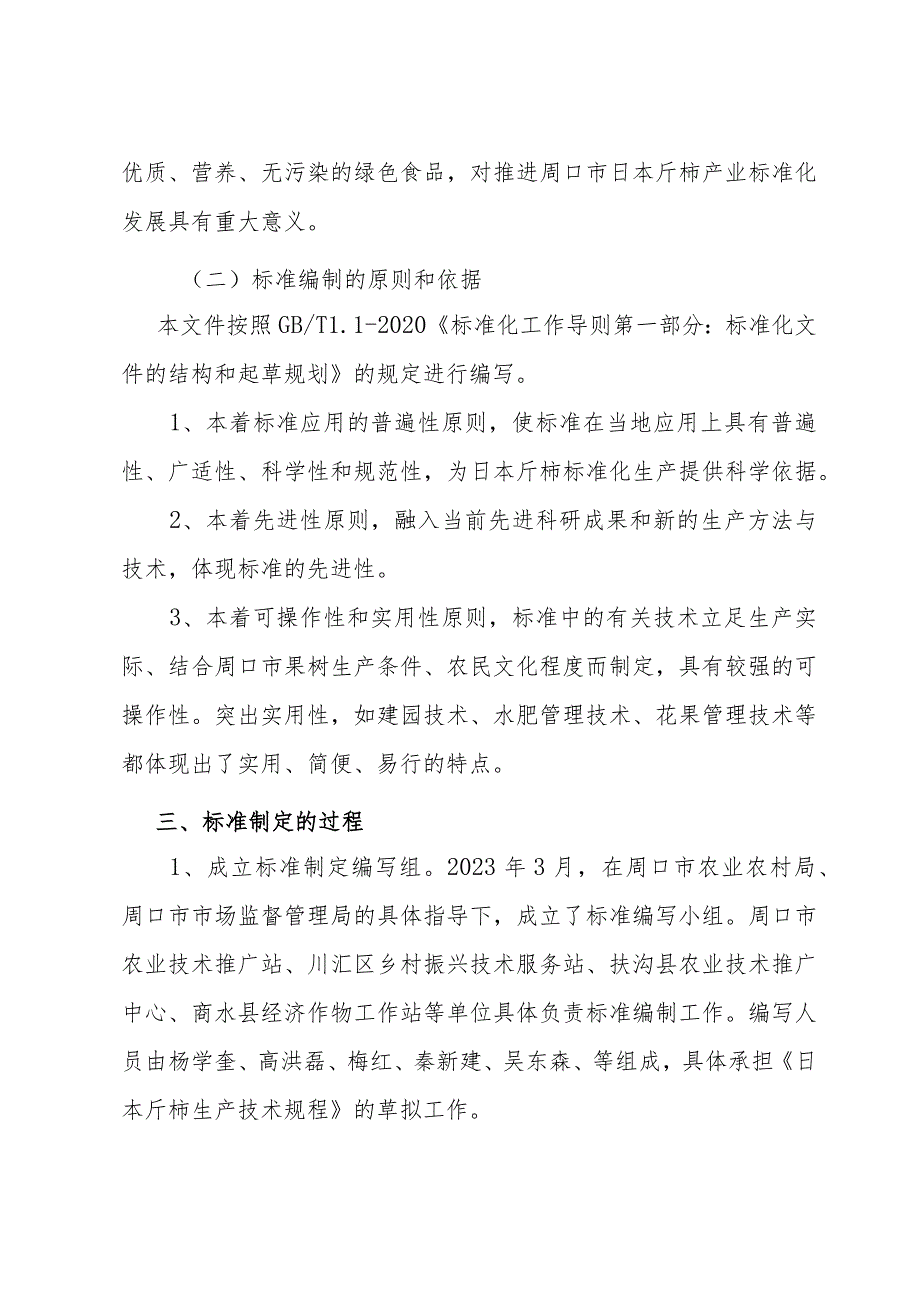 优质、营养、无污染的绿色食品，对推进周口市日本斤柿产业标准化
发展具有重大意义。
（二）标准编制的原则和依据
本文件按照GB/T1.1-2020《标准化工作导则第一部分：标准化文
件的结构和起草规划》的规定进行编写。
1、本着标准应用的普遍性原则，使标准在当地应用上具有普遍
性、广适性、科学性和规范性，为日本斤柿标准化生产提供科学依据。
2、本着先进性原则，融入当前先进科研成果和新的生产方法与
技术，体现标准的先进性。
3、本着可操作性和实用性原则，标准中的有关技术立足生产实
际、结合周口市果树生产条件、农民文化程度而制定，具有较强的可
操作性。突出实用性，如建园技术、水肥管理技术、花果管理技术等
都体现出了实用、简便、易行的特点。
三、标准制定的过程
1、成立标准制定编写组。2023年3月，在周口市农业农村局、
周口市市场监督管理局的具体指导下，成立了标准编写小组。周口市
农业技术推广站、川汇区乡村振兴技术服务站、扶沟县农业技术推广
中心、商水县经济作物工作站等单位具体负责标准编制工作。编写人
员由杨学奎、高洪磊、梅红、秦新建、吴东森、等组成，具体承担《日
本斤柿生产技术规程》的草拟工作。